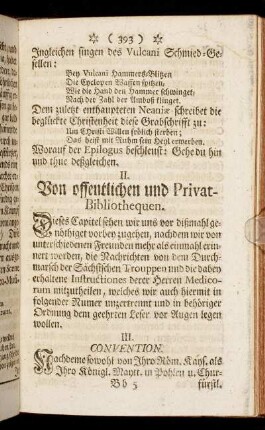 * ( 393 ) *
Ingleichen singen des Vulcani Schmied-Ge-
sellen:
Bey Vulcani Hammers/Blitzen
Die Cyclopen Waffen spitzen,
Wie die Hand den Hammer schwinget,
Nach der Zahl der Amboß klinget.
Dem zuletzt enthaupteren Neaniæ schreibet die
beglückte Christenheit diese Grabschrifft zu:
Um Christi Willen frölich sterben;
Das heist mit Ruhm sein Hegt erwerben.
Worauf der Epilogus beschleust: Gehe du hin
und thue deßgleichen.
II.
Von offentlichen und Privat-
Bibliothequen.
Dieses Capitel sehen wir uns vor dißmahl ge-
nöthiget vorbey zugehen, nachdem wir von
unterschiedenen Freunden mehr als einmahl erin-
nert worden, die Nachrichten von dem Durch-
marsch der Sächsischen Trouppen und die dabey
erhaltene Instructiones derer Herren Medico-
rum mitzutheilen, welches wir auch hiermit in
folgender Numer unzertrennt und in behöriger
Ordnung dem geehrten Leser vor Augen legen
wollen.
III.
CONVENTION.
Nachdeme sowohl von Ihro Röm. Kays. als
Ihro Königl. Maytt. in Pohlen u. Chur-
Bb 5 fürstl.